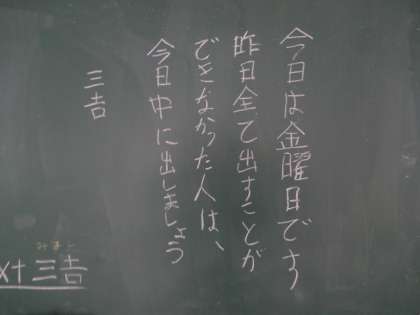 今日は金曜日です
昨日全て出すことが
できなかった人は、
今日中に出しましょう
三吉
みよし
三吉